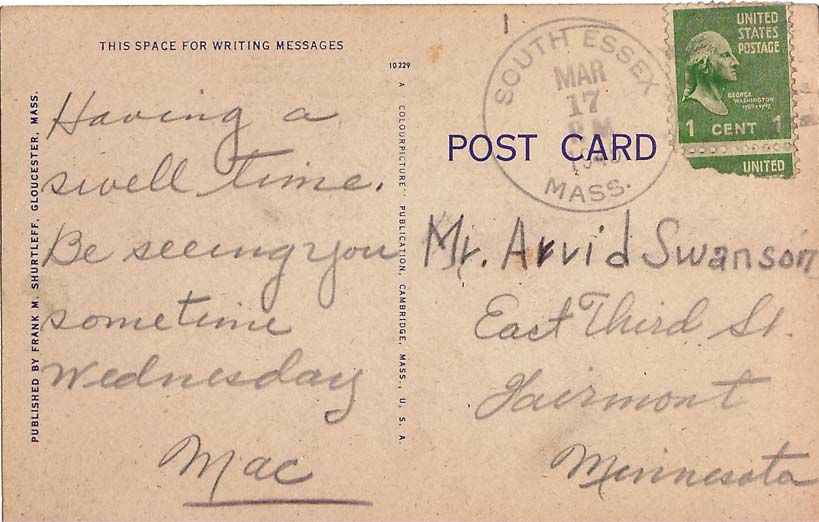 THIS SPACE FOR WRITING MESSAGES
Having a
swell time.
Be seeing you
sometime
Wednesday
Mac
PUBLISHED BY FRANK M. SHURTLEFF, GLOUCESTER, MASS.
10229
A COLOURPICTURE PUBLICATION, CAMBRIDGE, MASS., U. S. A.
SOUTH ESSEX
MAR
17
MASS.
UNITED
STATES
POSTAGE
GEORGE
WASHINGTON
1 CENT 1
UNITED
POST CARD
Mr. Arvid Swanson
East Third St.
Fairmont
Minnesota